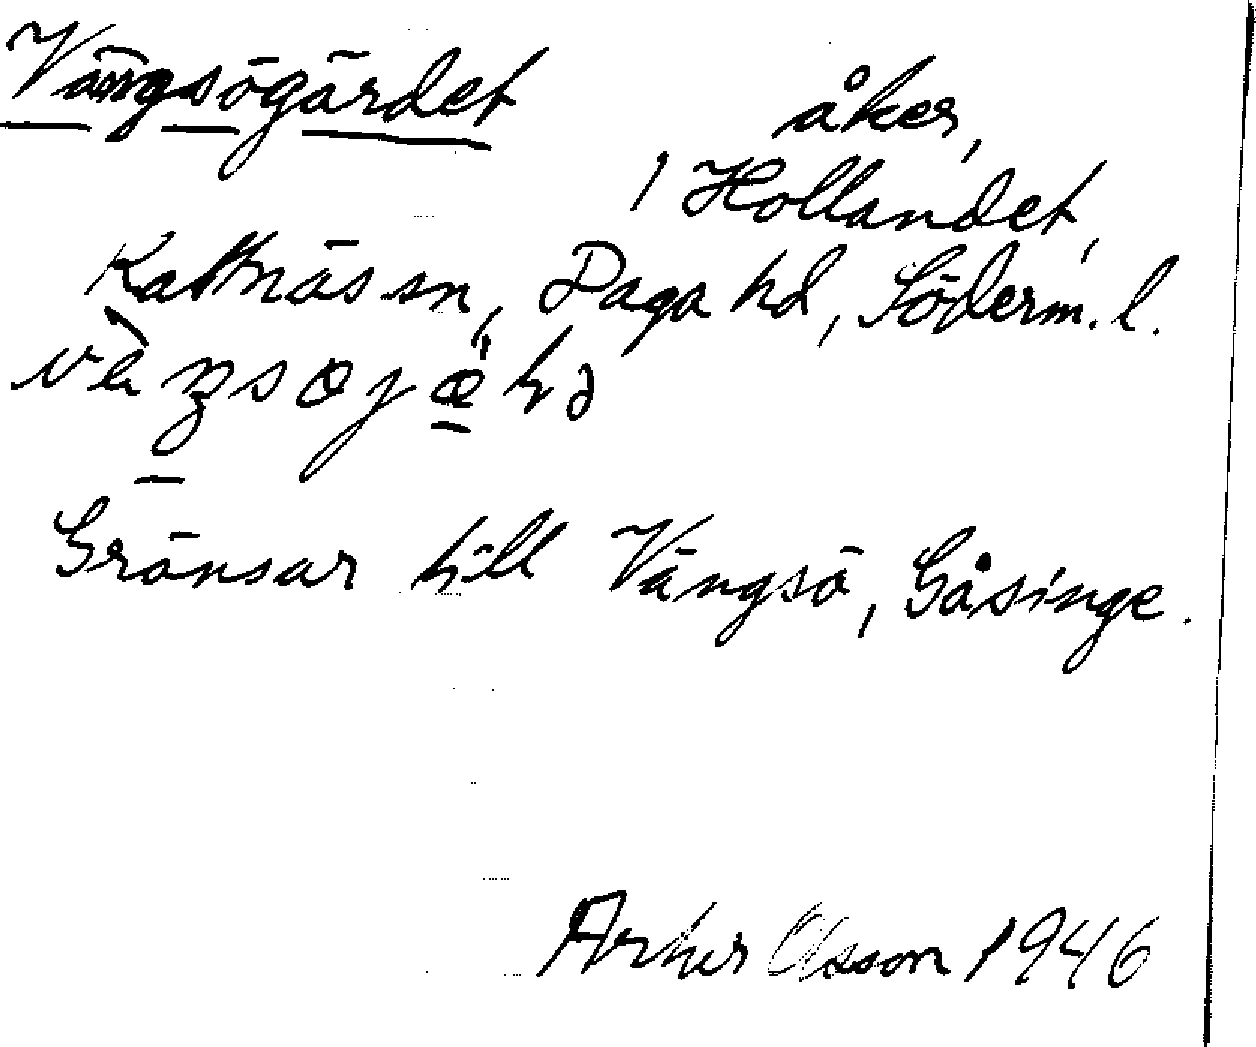 Vängsögärdet
åker,
i Hollandet,
Kattnäs sn, Daga hd, Söderm. l.
Gränsar till Vängsö, Gåsinge.
Arthur Olsson 1946